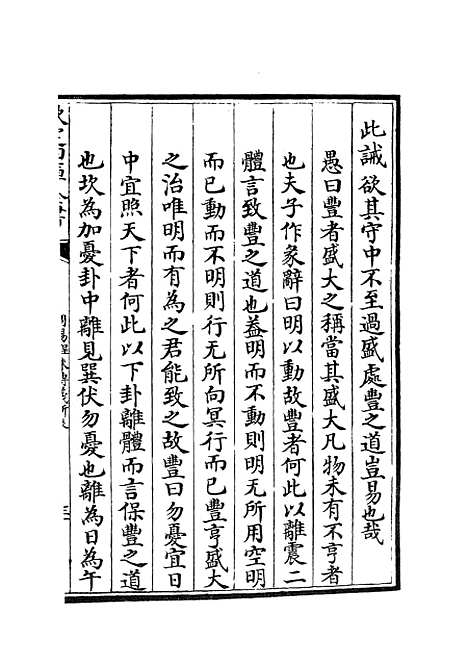 此誡欲其守中不至過盛處豐之道豈易也哉
愚曰豐者盛大之稱當其盛大凡物未有不亨者
也夫子作彖辭曰明以動故豐者何此以離震二
體言致豐之道也蓋明而不動則明无所用空明
而已動而不明則行无所向冥行而已豐亨盛大
之治唯明而有為之君能致之故豐曰勿憂宜日
中宜照天下者何此以下卦離體而言保豐之道
也坎為加憂卦中離見巽伏勿憂也離為日為午